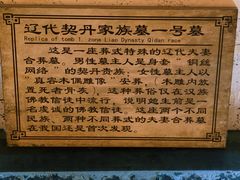 辽代契丹家族墓一号墓
Replica of tomb 1, zone Liao Dynasty Qidan race
这是一座葬式特殊的辽代夫妻
合葬墓。男性墓主人是身套“铜丝
网络”的契丹贵族，女性墓主人以
“真容木偶雕像”安葬，（木雕内放
置死者骨灰），这种葬俗仅在汉族
佛教信徒中流行，说明她生前是一
名虔诚的佛教信徒。这座两个不同
民族、两种不同葬式的夫妻合葬墓
在我国还是首次发现。